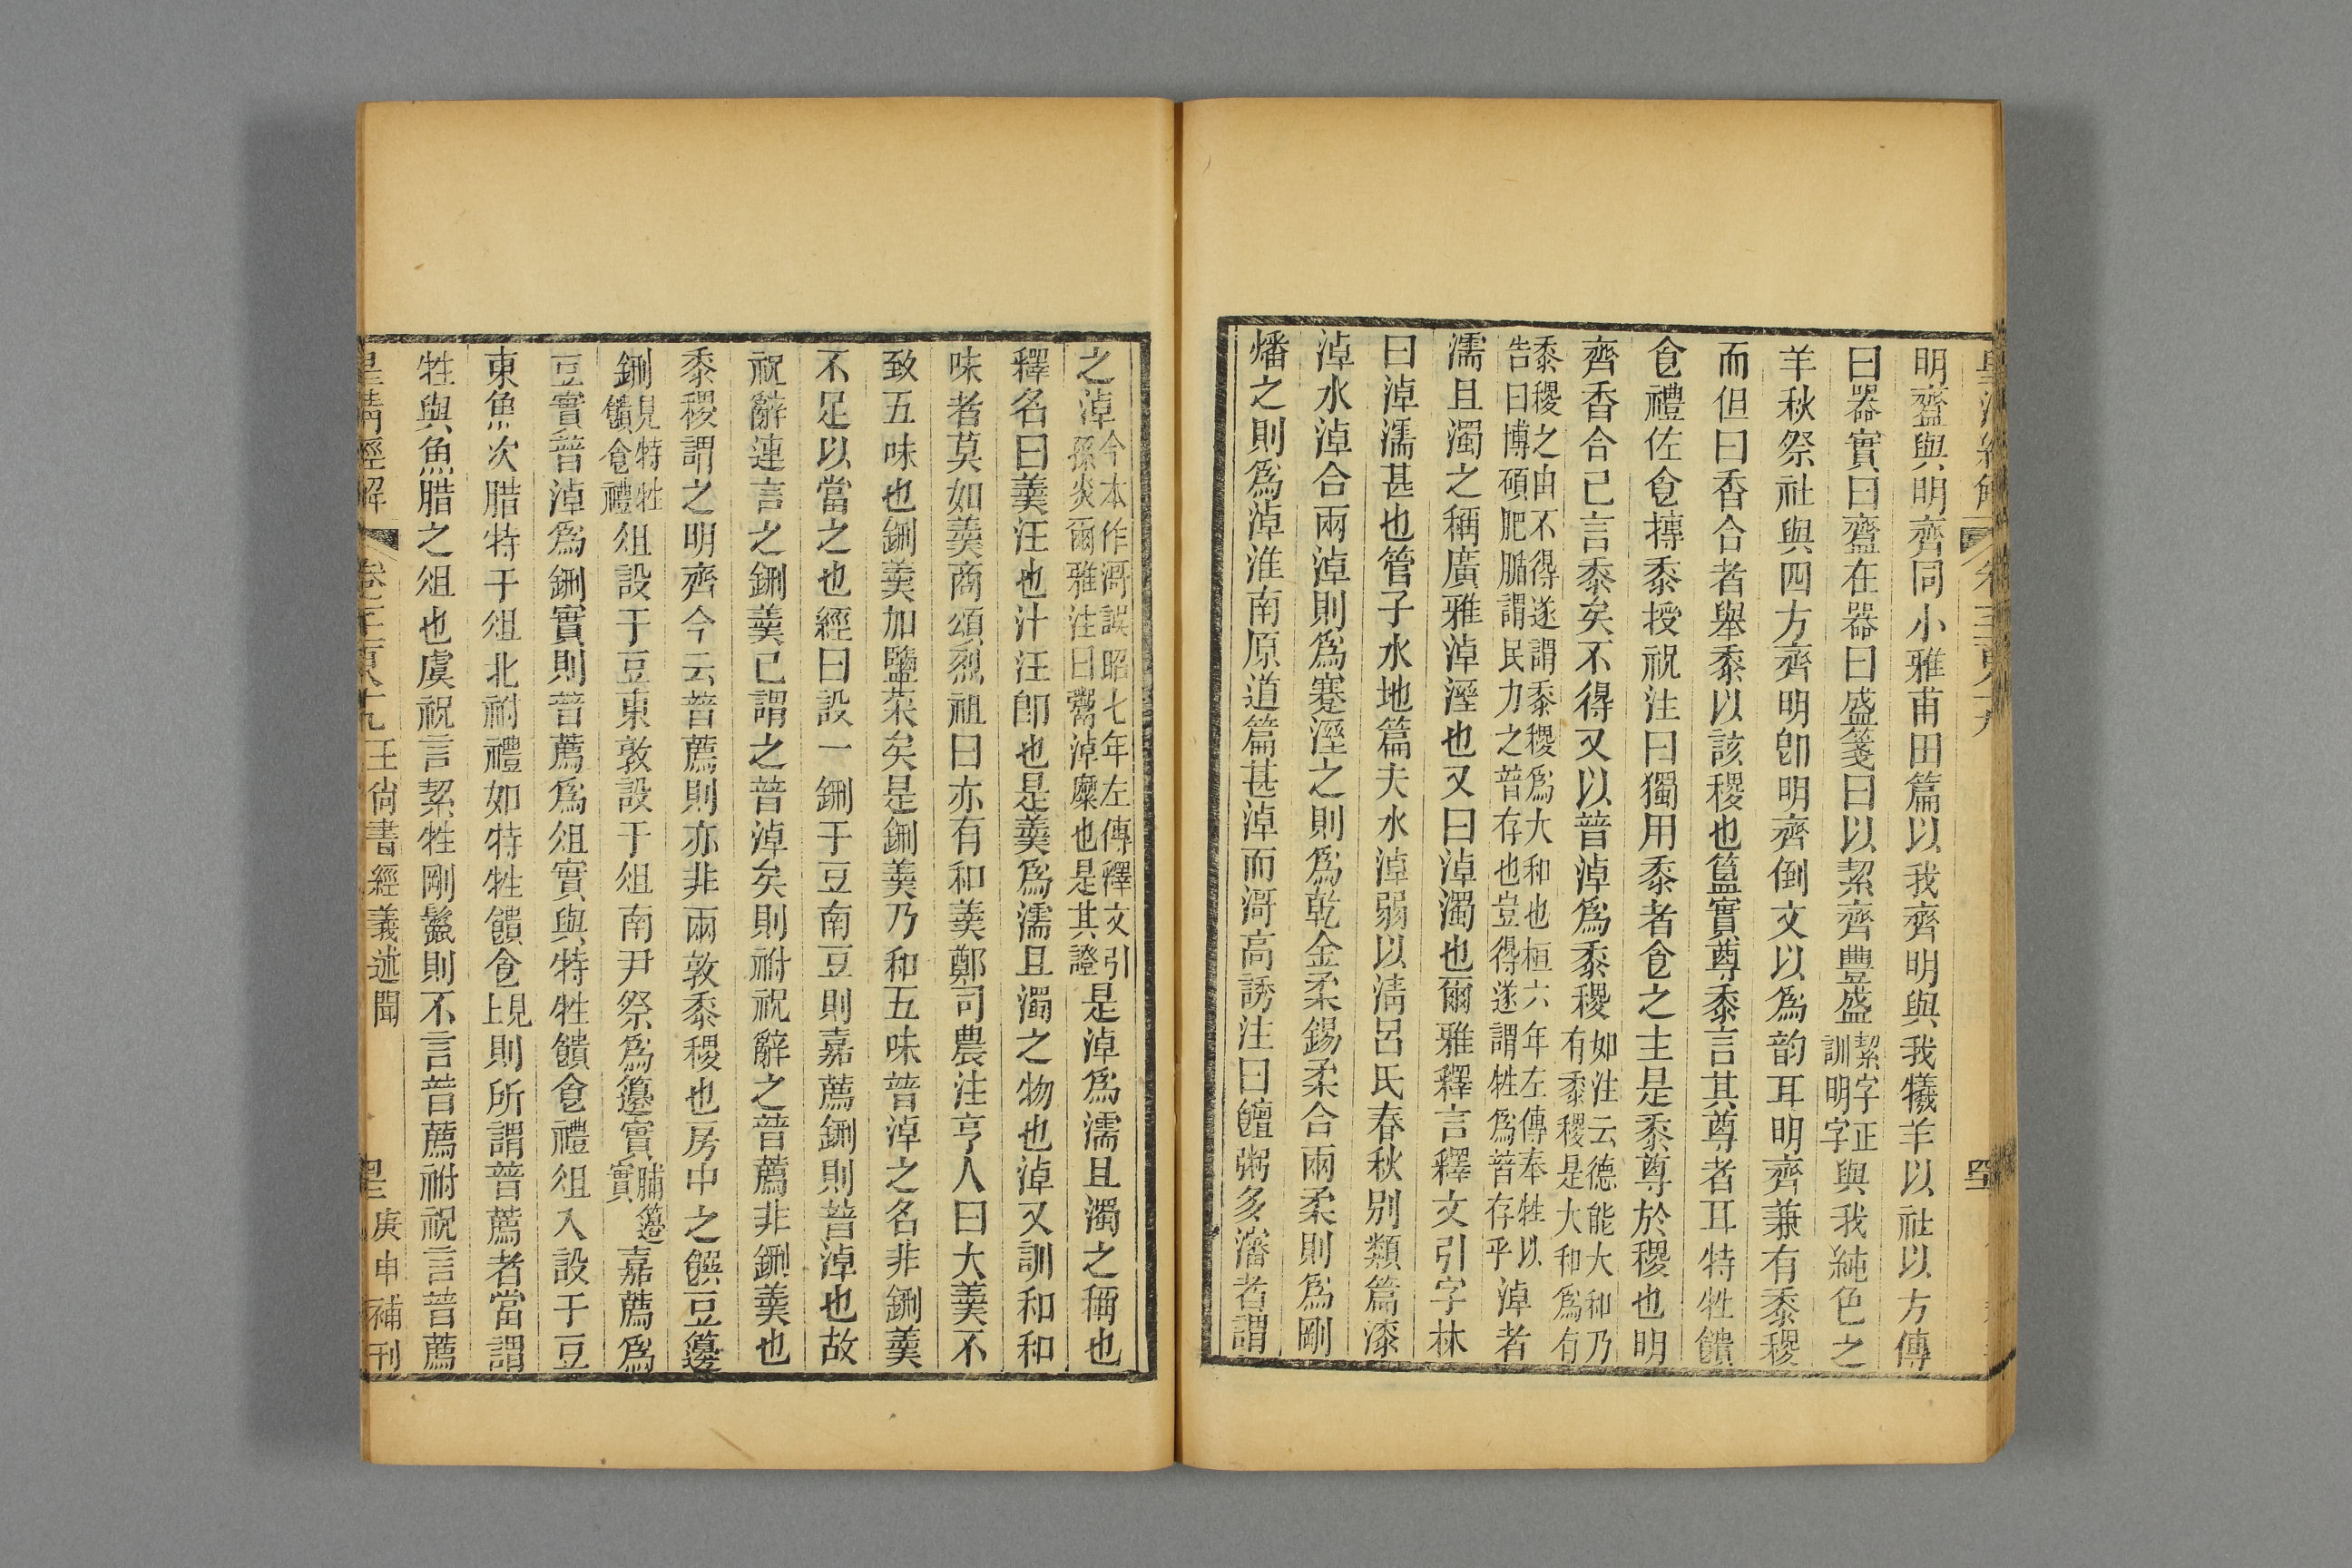 明齍與明齊同小雅甫田篇以我齊明與我犧羊以社以方傳
曰器實曰齍在器曰盛箋曰以絜齊豐盛絜字正訓明字與我純色之
羊秋祭社與四方齊明卽明齊倒文以爲韵耳明齊兼有黍稷
而但曰香合者舉黍以該稷也簋實尊黍言其尊者耳特牲饋
食禮佐食摶黍授祝注曰獨用黍者食之主是黍尊於稷也明
齊香合已言黍矣不得又以普淖爲黍稷如注云德能大和乃有黍稷是大和爲有
黍稷之由不得遂謂黍稷爲大和也桓六年左傳奉牲以告曰博碩肥腯謂民力之普存也豈得遂謂牲爲普存乎淖者
濡且濁之稱廣雅淖溼也又曰淖濁也爾雅釋言釋文引字林
曰淖濡甚也管子水地篇夫水淖弱以淸呂氏春秋別類篇漆
淖水淖合兩淖則爲蹇溼之則爲乾金柔錫柔合兩柔則爲剛
燔之則爲淖淮南原道篇甚淖而滒高誘注曰饘粥多瀋者謂
之淖今本作滒誤昭七年左傳釋文引孫炎爾雅注曰鬻淖糜也是其證是淖爲濡且濁之稱也
釋名曰羹汪也汁汪郎也是羹爲濡且濁之物也淖又訓和和
味者莫如羹商頌烈祖曰亦有和羹鄭司農注亨人曰大羹不
致五味也鉶羹加鹽菜矣是鉶羹乃和五味普淖之名非鉶羹
不足以當之也經曰設一鉶于豆南豆則嘉薦鉶則普淖也故
祝辭連言之鉶羹已謂之普淖矣則祔祝辭之普薦非鉶羹也
黍稷謂之明齊今云普薦則亦非兩敦黍稷也房中之饌豆籩
鉶見特牲饋食禮俎設于豆東敦設于俎南尹祭爲籩實脯籩實嘉薦爲
豆實普淖爲鉶實則普薦爲俎實與特牲饋食禮俎入設于豆
東魚次腊特于俎北祔禮如特牲饋食見上則所謂普薦者當謂
牲與魚腊之俎也虞祝言絜牲剛鬣則不言普薦祔祝言普薦
皇淸經解 王尙書經義述聞 庚申補刊